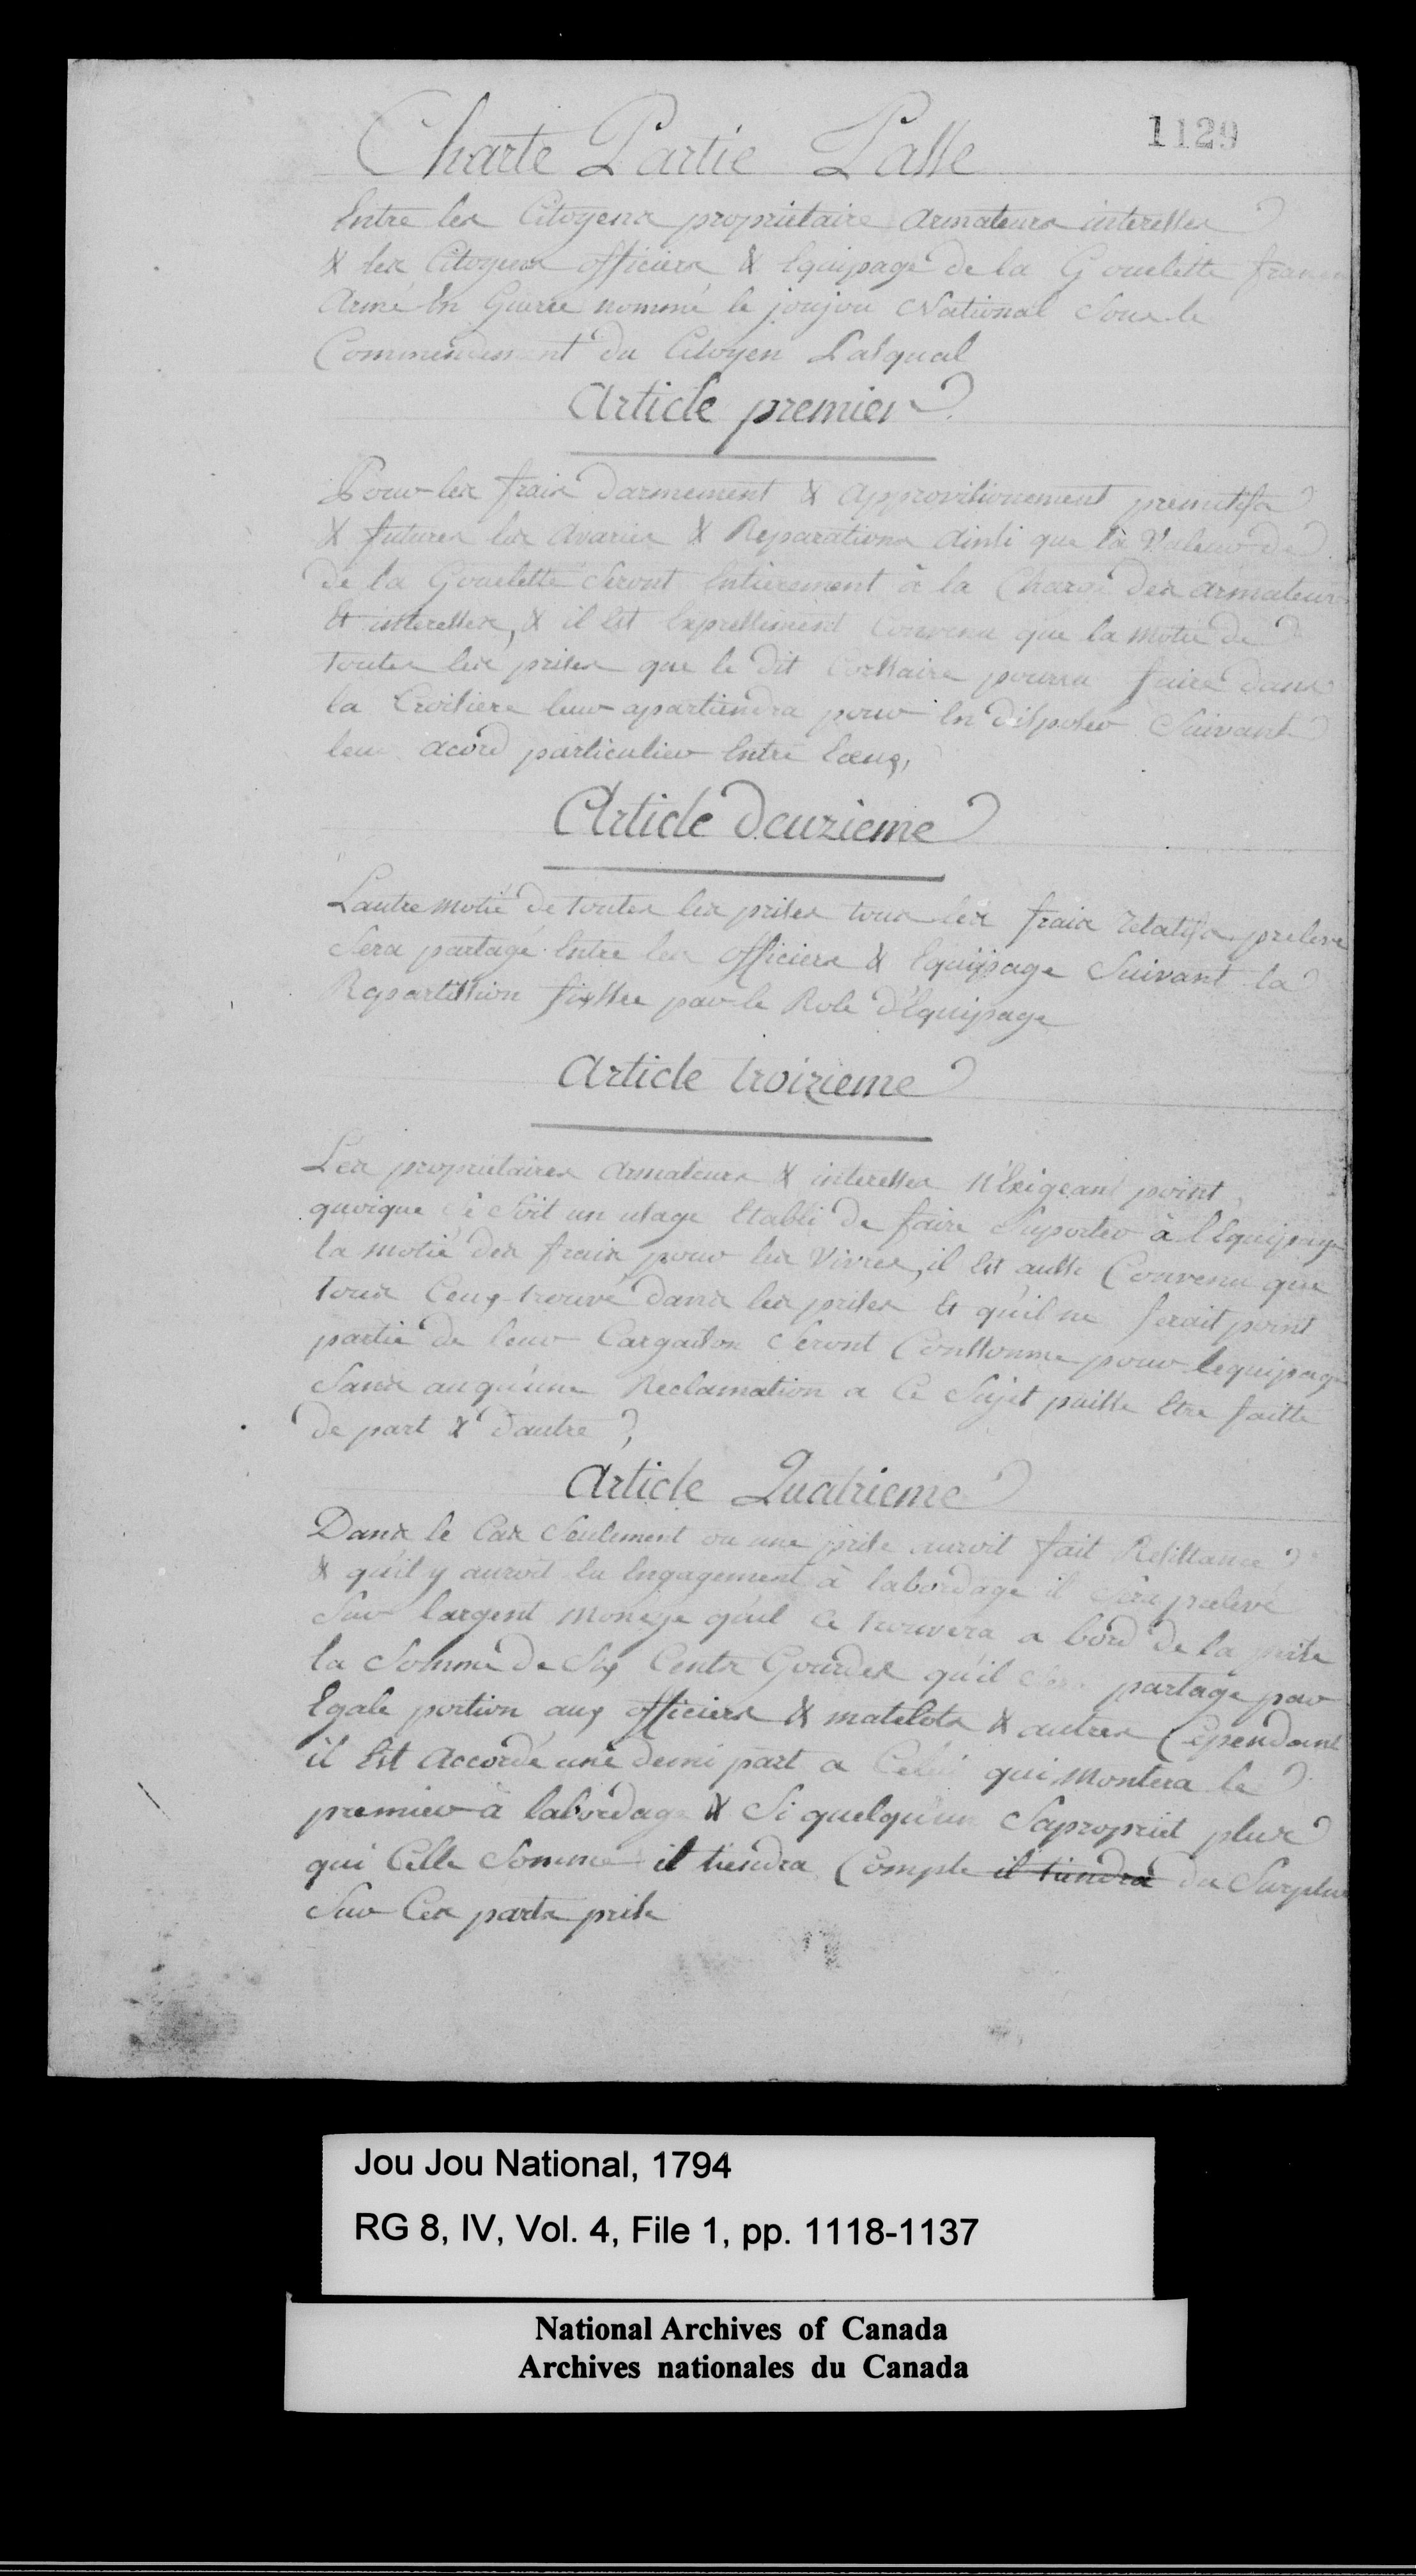 1129
Charte Partie Passe
Entre les Citoyens proprietaire Armateurs interesses
& les Citoyens officiers & Equipage de la Gouelette
Armé En Guerre nommé le joujou National Sous le
Commendement du Citoyen Pasqual
Article premier
Pour les frais darmement & Approvisionement premitifs
& futures les Avaries & Reparations Ainsi que la Valeur de
de la Gouelette Seront Entierement à la Charge des Armateurs
Et interesses, & il Est Expressiment Convenu que la motié de
toutes les prises que le dit Corssaire pourra faire dans
la Croisiere leur apartiendra pour En disposer Suivant
leur acord particulier Entre Eeux,
Article deuzieme
Lautre motié de toutes les prises tous les frais relatifs preleve
Sera partagé Entre les officiers & Equipage Suivant la
Repartission fixsee par le Role d'Equipage
Article troizieme
Les proprietaires Armateurs & interesses N'Exigeant point,
quoique Ce Soit un usage Etabli de faire Suporter à l'Equipage
la motié des frais pour les Vivres, il Est ausse Convenu que
tous Ceux trouvé dans les prises Et qu'il ne ferait point
partie de leur Cargaison Seront Conssomme pour lequipage
Sans auqu'une Reclamation a Ce Sujet puisse Etre faitte
de part & dautre,
Article Quatrieme
Dans le Cas Seulement ou une prise auroit fait Resistance
& qu'il y auroit Eu Engagement à labordage il Sera prelevé
Sur largent monéye qu'il Ce trouvera a bord de la prise
la Somme de Six Cents Gourdes qu'il Sera partage par
Egale portion aux officiers & matelots & autres Cependant
il Est Accordé une demi part a Celui qui Montera le
premier à labordage & Si quelqu'un Sapropriet plus
qui Cette Somme il tiendra Compte il tiendra du Surplus
Sur Ces parts prise
Jou Jou National, 1794
RG 8, IV, Vol. 4, File 1, pp. 1118-1137
National Archives of Canada
Archives nationales du Canada